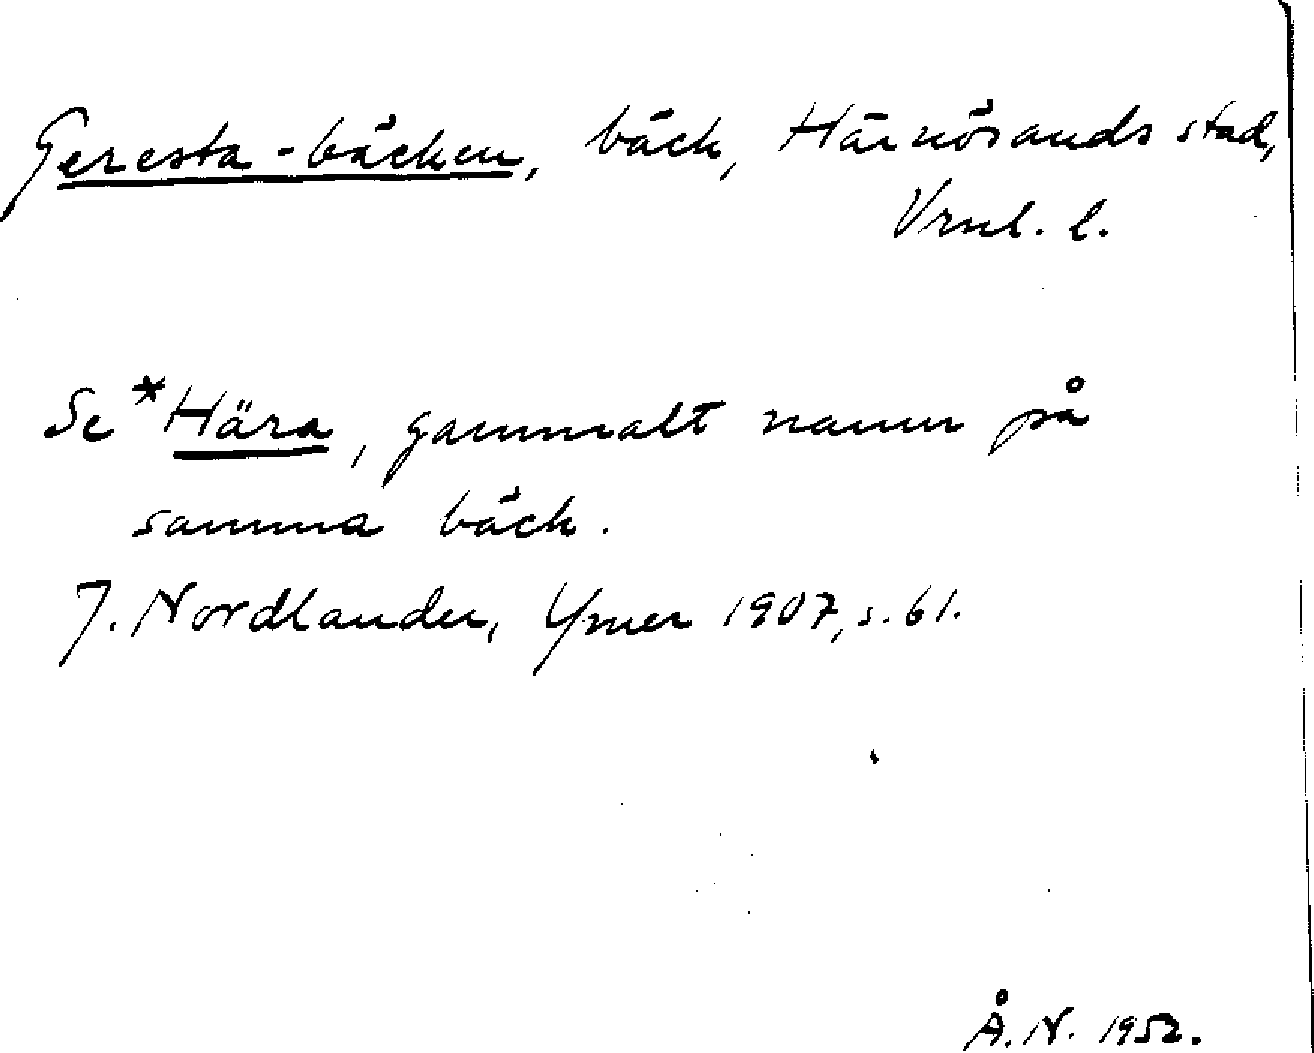 Geresta-bäcken, bäck, Härnösands stad,
Vrnl. l.
Se *Hära, gammalt namn på
samma bäck.
J. Nordlander, Ymer 1907, s. 61.
Å. N. 1952.